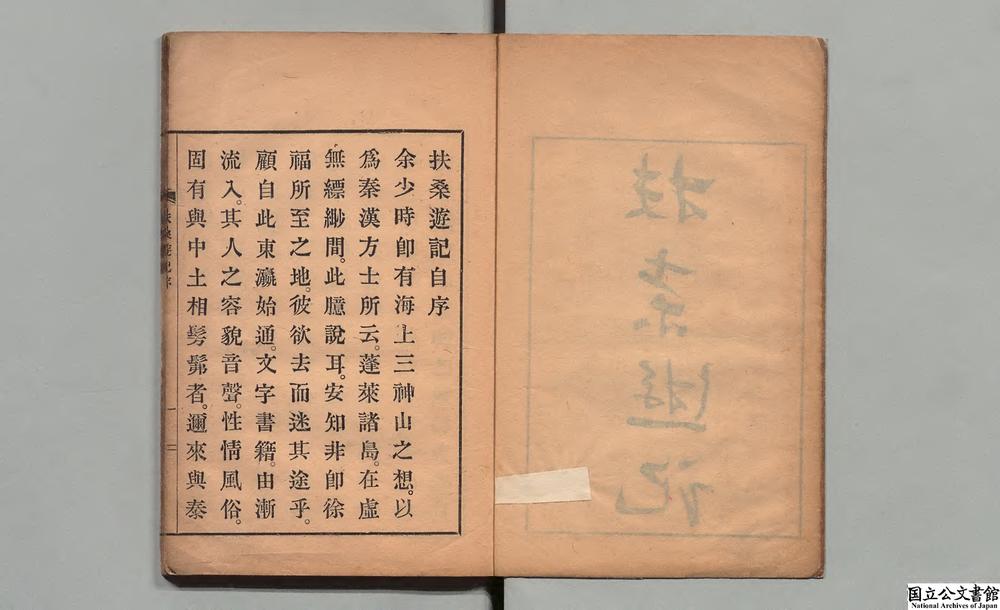 扶桑遊記
扶桑遊記自序
余少時卽有海上三神山之想。以
爲秦漢方士所云。蓬萊諸島。在虛
無縹緲間。此臆說耳。安知非卽徐
福所至之地。彼欲去而迷其途乎。
顧自此東瀛始通。文字書籍。由漸
流入。其人之容貌音聲。性情風俗。
固有與中土相髣髴者。邇來與泰
国立公文書館
National Archives of Japan